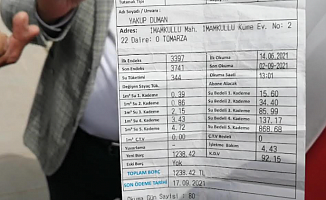 Tutanak Tipi
Adı Soyadı / Unvanı :
YAKUP DUMAN
Adres : IMAMKULLU Mah. IMAMKULLU Kume Ev. No: 2
22 Daire: 0 TOMARZA
İlk Endeks 3397 İlk Okuma 14.06.2021
Son Endeks 3741 Son Okuma 02-09-2021
Su Tüketimi 344 Okuma Saati 13:01
1m³ Su 1. Kademe 0.39 Su Bedeli 1. Kademe 15.60
1m³ Su 2. Kademe 0.86 Su Bedeli 2. Kademe 34.40
1m³ Su 3. Kademe 2.15 Su Bedeli 3. Kademe 85.99
1m³ Su 4. Kademe 3.43 Su Bedeli 4. Kademe 137.17
1m³ Su 5. Kademe 4.72 Su Bedeli 5. Kademe 868.68
0.00 Ç.T.V Bedeli 0
Yuvarlama - İşletme Bakım 4.43
Yeni Borç 1238.42 K.D.V 92.15
Eski Borç Yok
TOPLAM BORÇ 1238.42 TL
SON ÖDEME TARİHİ 17.09.2021
Okuma Gün Sayısı : 80